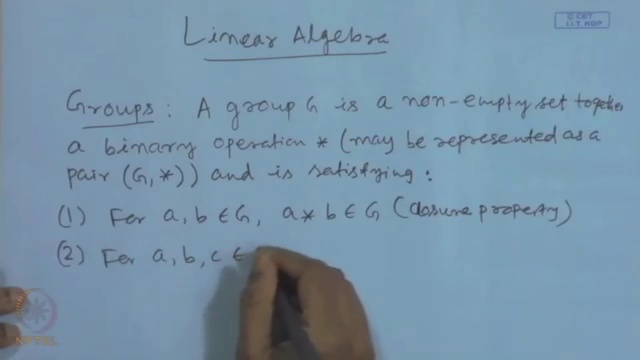 © CET
I.I.T. KGP
Linear Algebra
Groups : A group G is a non-empty set together
a binary operation * (may be represented as a
pair (G, *)) and is satisfying :
(1) For a, b ∈ G, a * b ∈ G (closure property)
(2) For a, b, c ∈
NPTEL